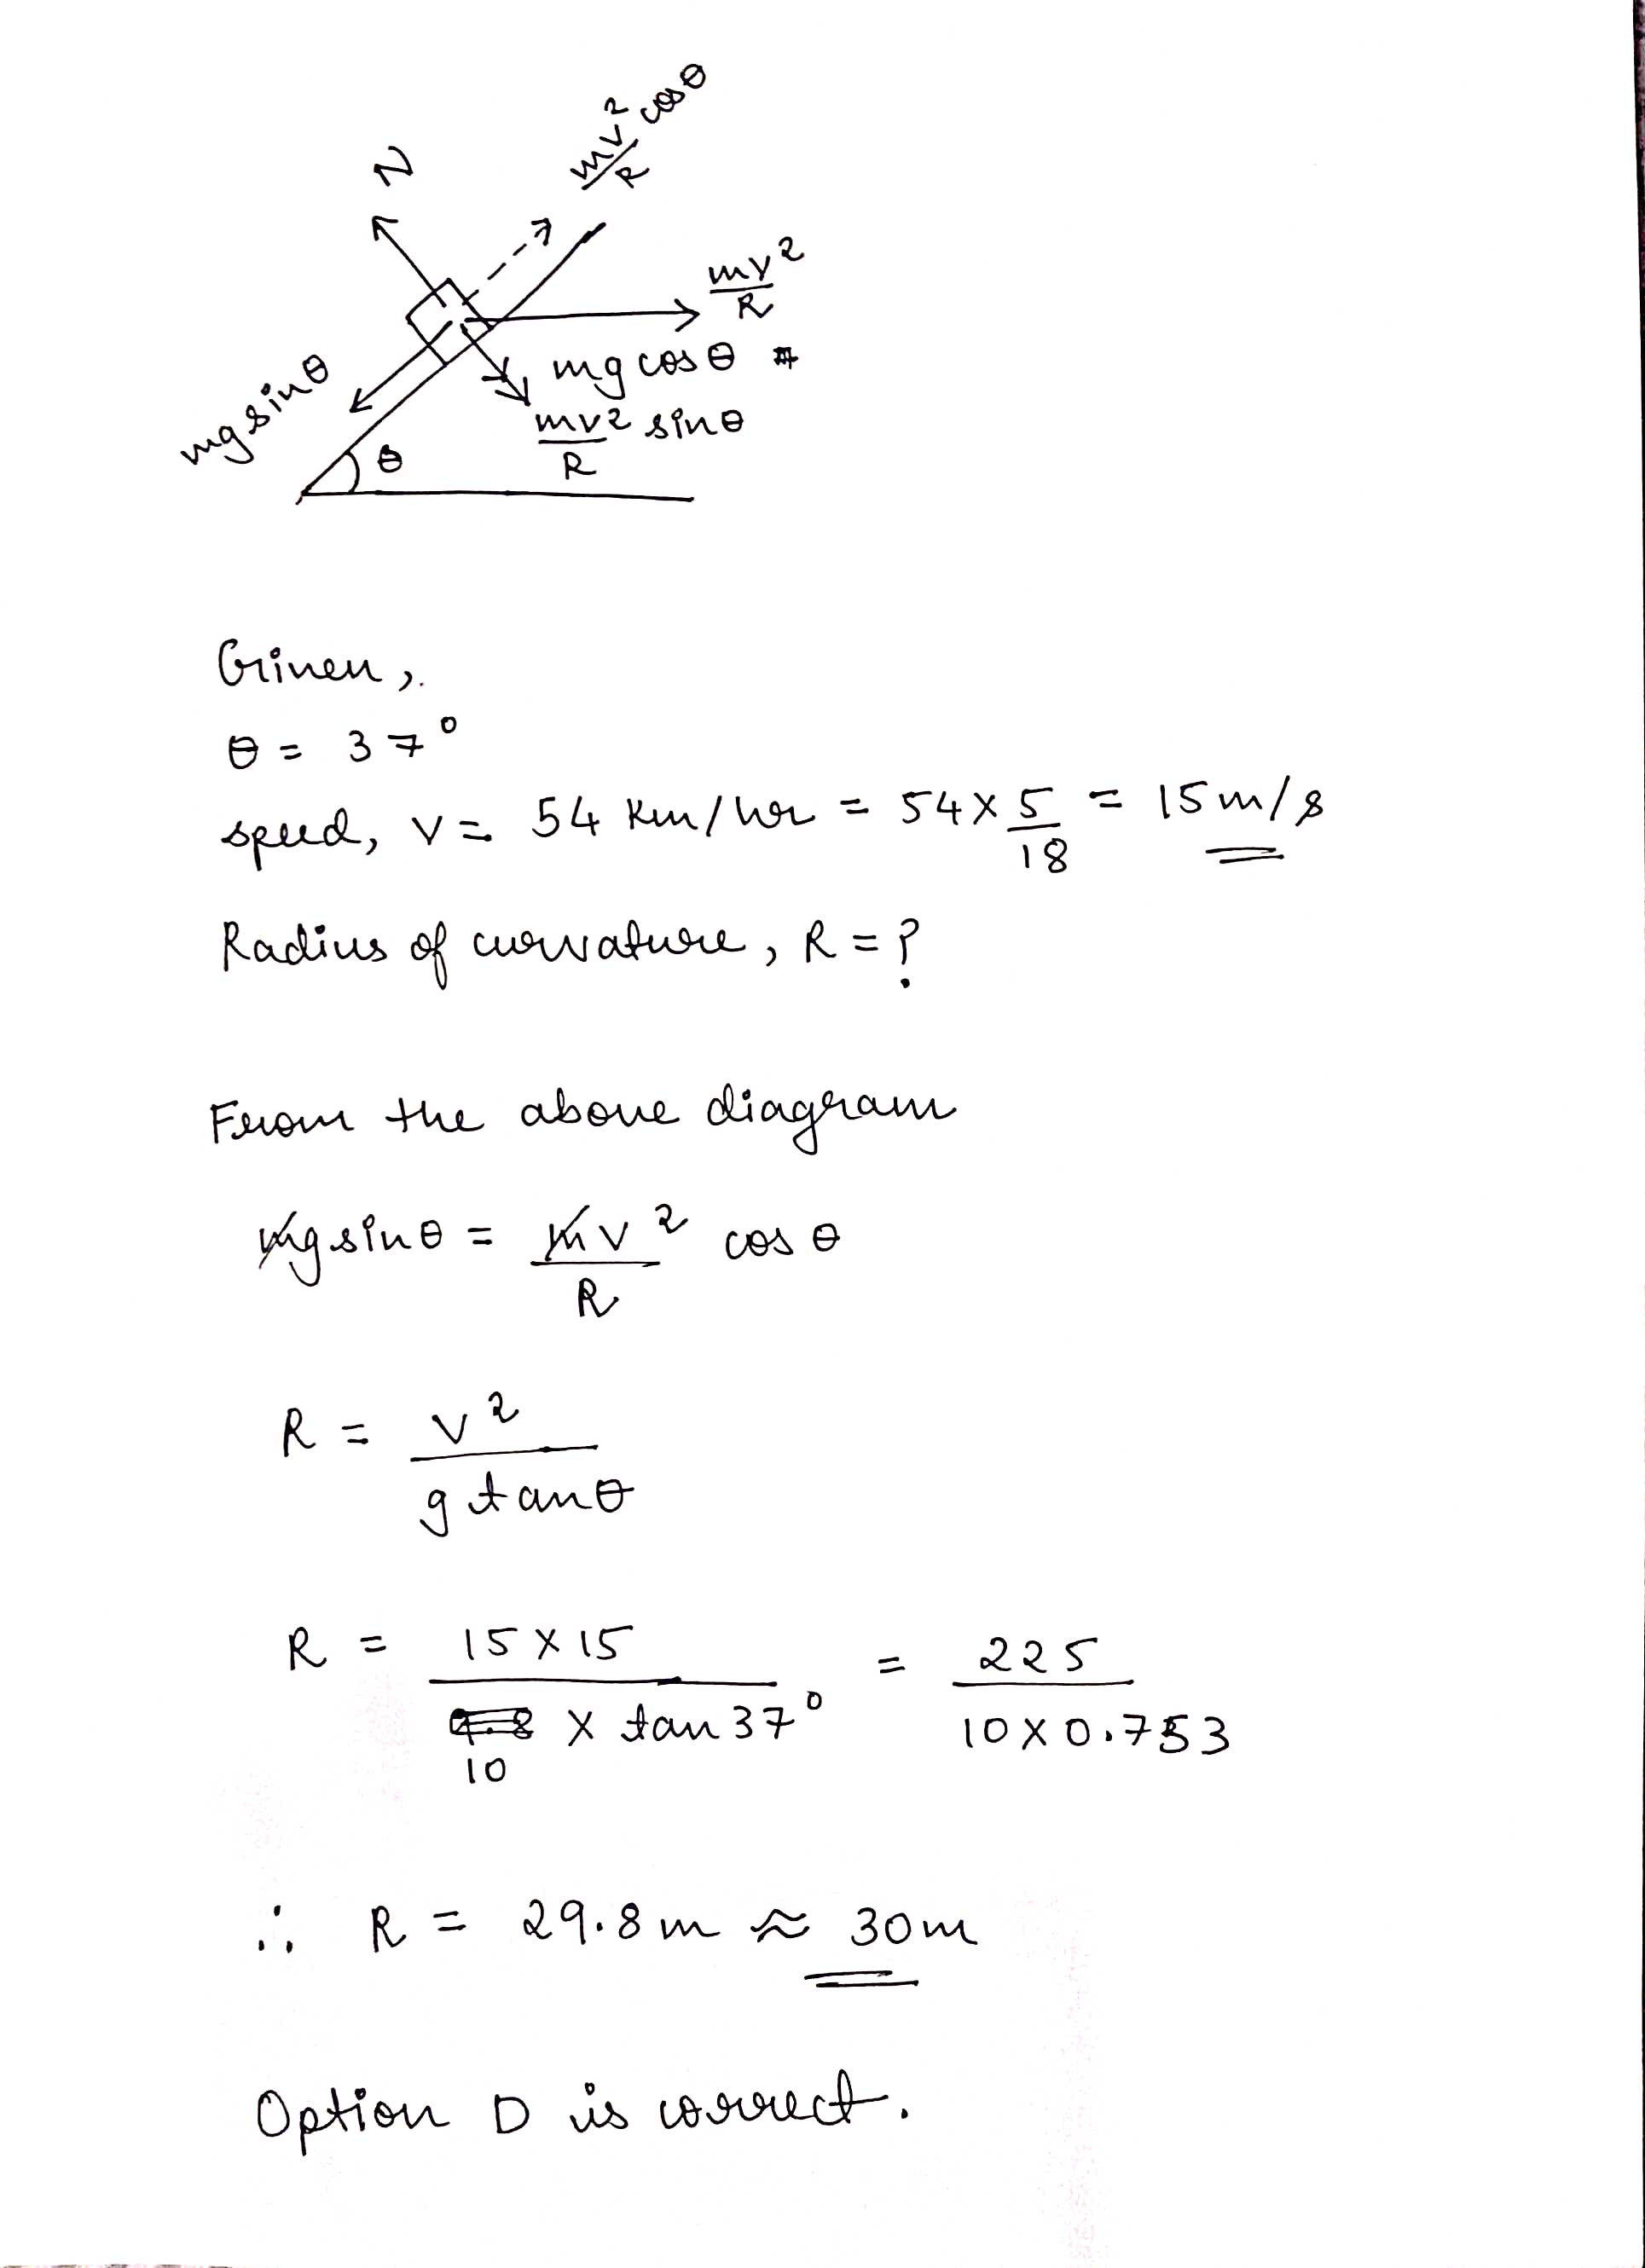 N
mv²/R cosθ
mv²/R
mg sinθ
mg cosθ
mv²/R sinθ
θ
Given,
θ = 37°
speed, v = 54 km/hr = 54 × 5/18 = 15 m/s
Radius of curvature, R = ?
From the above diagram
mg sinθ = mv²/R cosθ
R = v²/g tanθ
R = 15 × 15/10 × tan 37° = 225/10 × 0.753
∴ R = 29.8 m ≈ 30 m
Option D is correct.